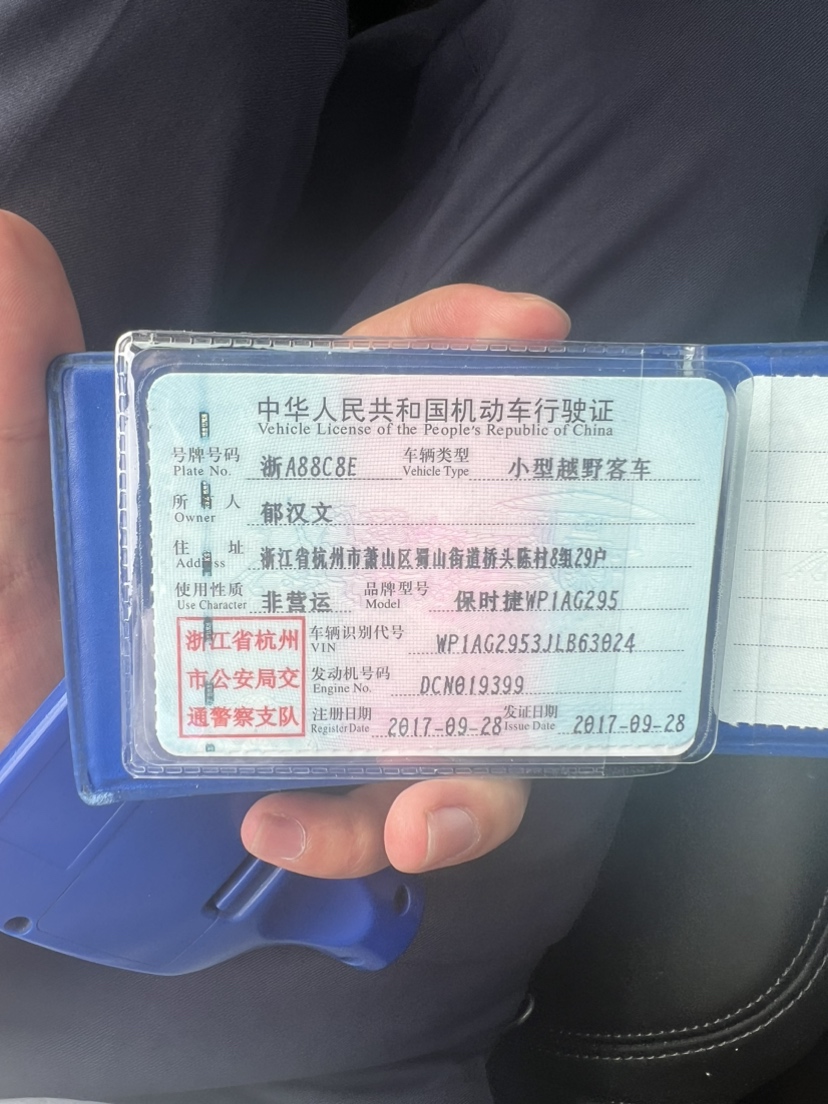 中华人民共和国机动车行驶证
Vehicle License of the People's Republic of China
号牌号码 浙A88C8E 车辆类型 小型越野客车
Plate No. Vehicle Type
所有人 郁汉文
Owner
住址 浙江省杭州市萧山区蜀山街道桥头陈村8组29户
Address
使用性质 非营运 品牌型号 保时捷WP1AG295
Use Character Model
浙江省杭州
市公安局交
通警察支队
车辆识别代号 WP1AG2953JLB63024
VIN
发动机号码 DCN019399
Engine No.
注册日期 2017-09-28 发证日期 2017-09-28
Register Date Issue Date